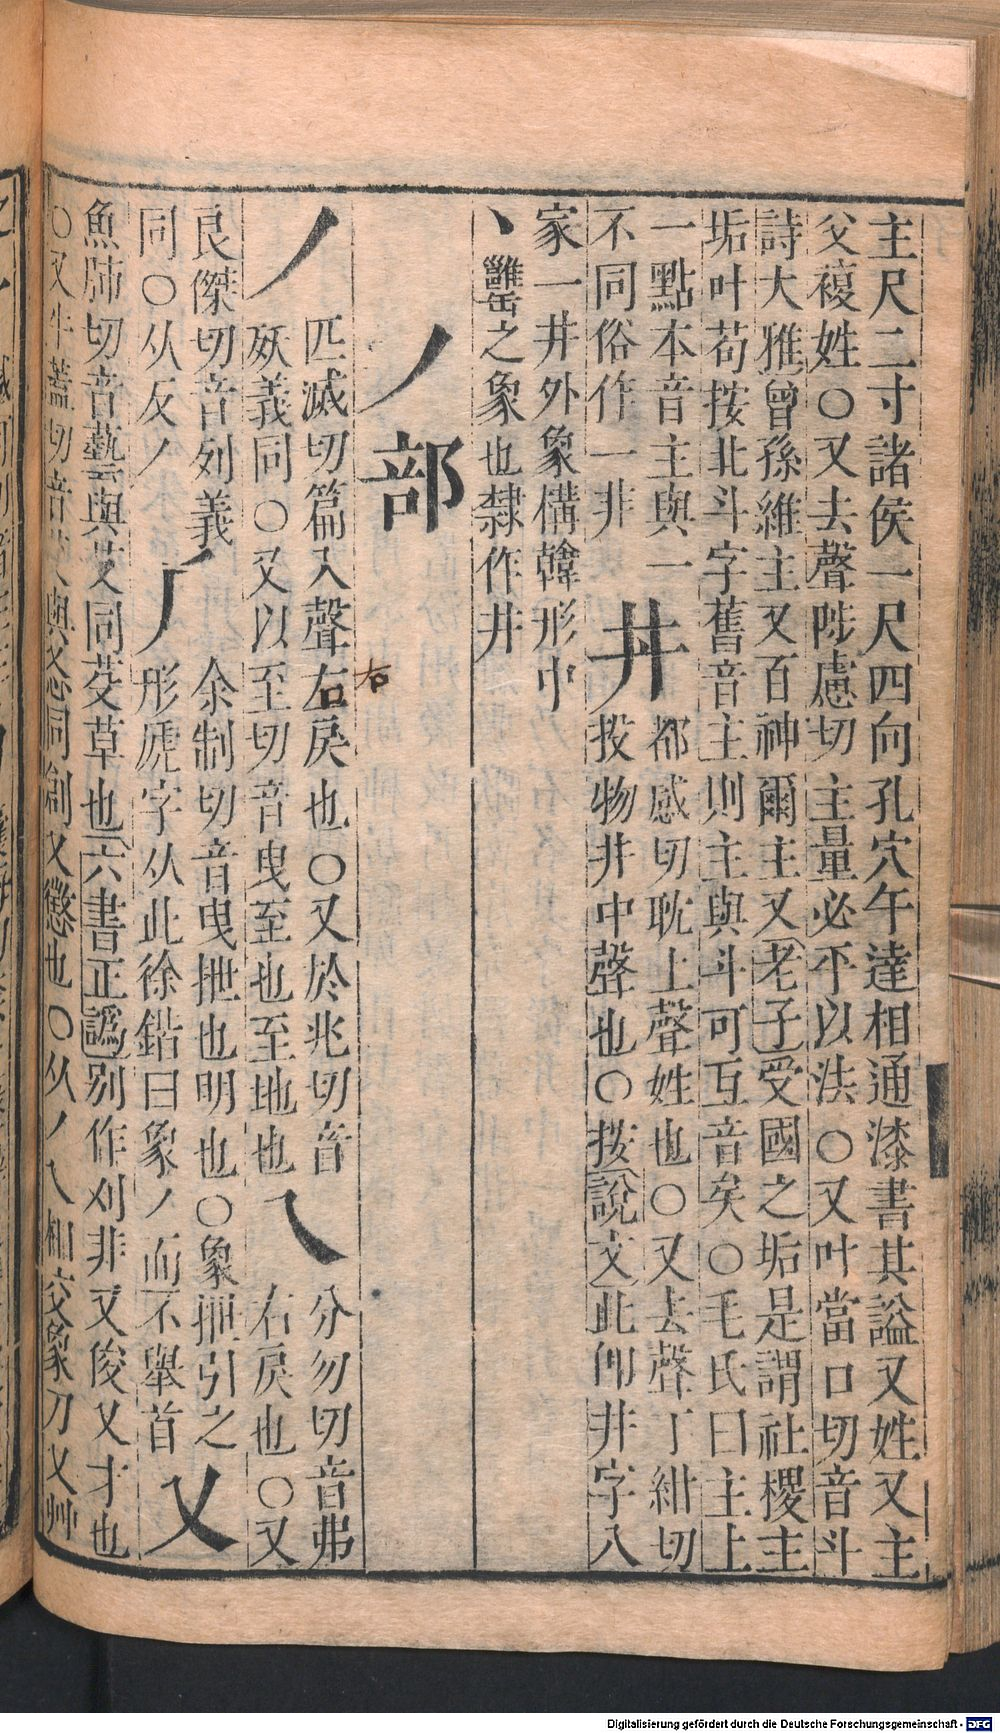 主尺二寸諸侯一尺四向孔穴午達相通漆書其謚又姓又主
父複姓○又去聲陟慮切主量必平以法○又叶當口切音斗
詩大雅曾孫維主又百神爾主又老子受國之垢是謂社稷主
垢叶苟按北斗字舊音主則主與斗可互音矣○毛氏曰主上
一點本音主與一
不同俗作一非
丼
都感切耽上聲姓也○又去聲丁紺切
投物井中聲也○按說文此卽井字八
家一井外象構韓形中
丶𦉥之象也隸作井
丿部
丿
匹滅切篇入聲右戾也○又於兆切音
殀義同○又以至切音曳至也至地也
乀
分勿切音弗
右戾也○又
良傑切音列義
同○从反丿
𠂆
余制切音曳抴也明也○象抴引之
形虒字从此徐鍇曰象丿而不舉首
乂
魚肺切音藝與㐅同芟草也六書正譌別作刈非又俊乂才也
○又牛蓋切音艾與㣻同創乂懲也○从丿乀相交象刀乂艸
右
Digitalisierung gefördert durch die Deutsche Forschungsgemeinschaft - DFG